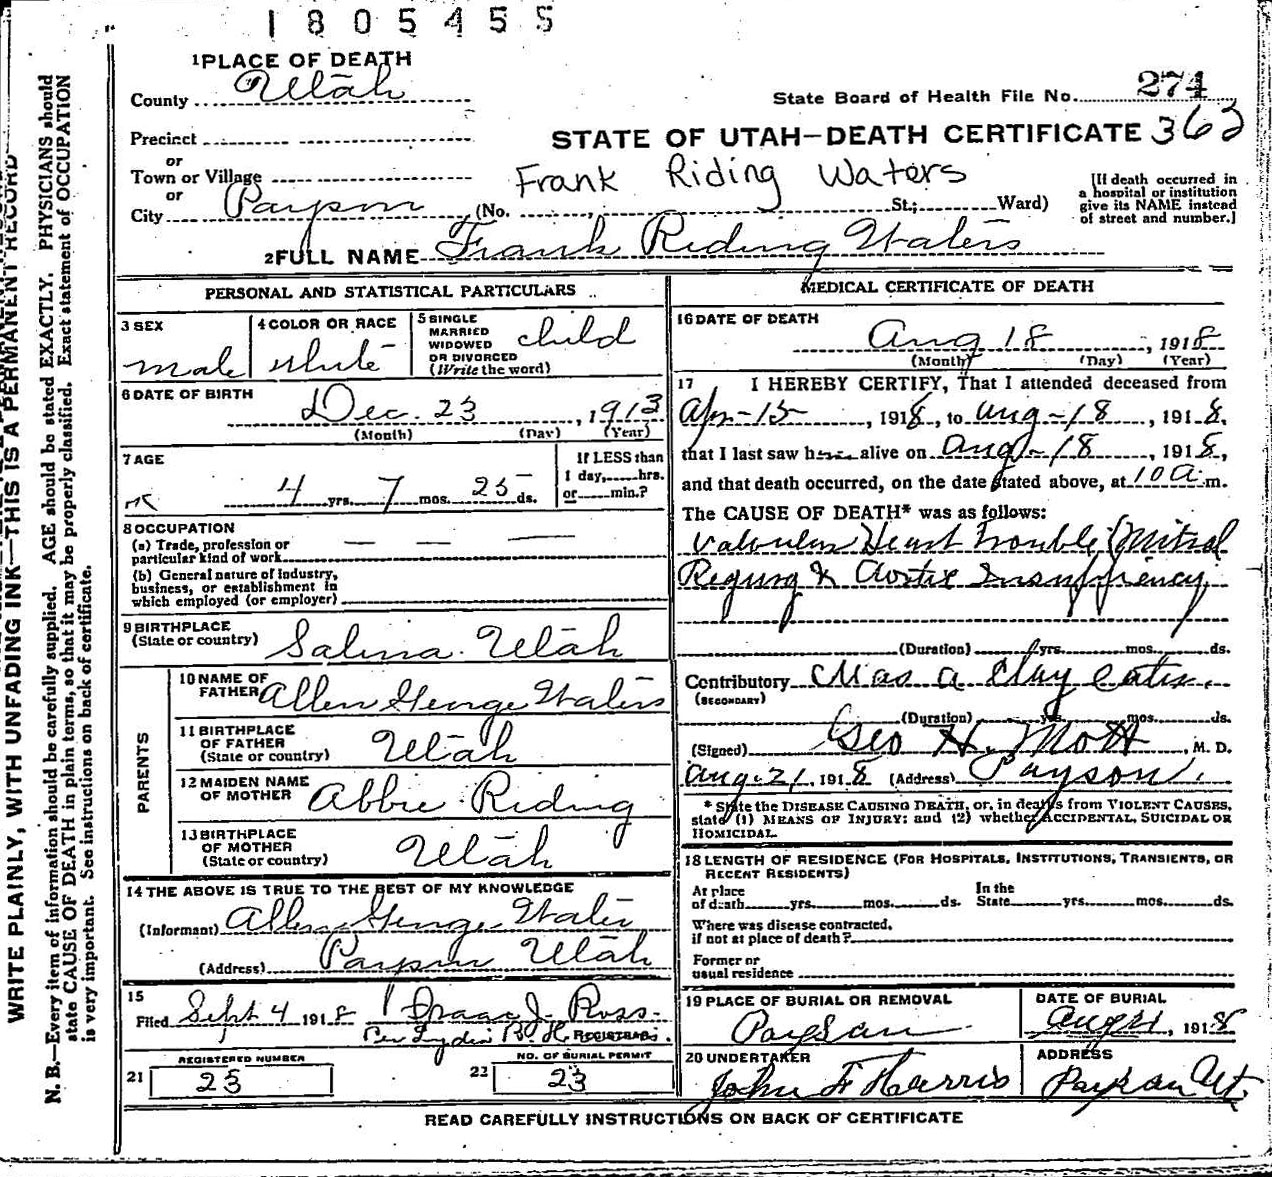 1805455
1 PLACE OF DEATH
County Utah
State Board of Health File No. 274
Precinct
STATE OF UTAH—DEATH CERTIFICATE 363
or
Town or Village
Frank Riding Waters
[If death occurred in a hospital or institution give its NAME instead of street and number.]
or
City Payson (No. St.; Ward)
2 FULL NAME Frank Riding Waters
PERSONAL AND STATISTICAL PARTICULARS
3 SEX male
4 COLOR OR RACE white
5 SINGLE MARRIED WIDOWED OR DIVORCED (Write the word) child
6 DATE OF BIRTH Dec. 23, 1913
(Month) (Day) (Year)
7 AGE
4 yrs. 7 mos. 25 ds.
If LESS than 1 day, hrs. or min.?
8 OCCUPATION
(a) Trade, profession or particular kind of work — — —
(b) General nature of industry, business, or establishment in which employed (or employer)
9 BIRTHPLACE (State or country) Salina Utah
PARENTS
10 NAME OF FATHER Allen George Waters
11 BIRTHPLACE OF FATHER (State or country) Utah
12 MAIDEN NAME OF MOTHER Abbie Riding
13 BIRTHPLACE OF MOTHER (State or country) Utah
14 THE ABOVE IS TRUE TO THE BEST OF MY KNOWLEDGE
(Informant) Allen George Waters
(Address) Payson Utah
15
Filed Sept 4 1918 Isaac J. Ross
Per Lydia B. H. REGISTRAR
REGISTERED NUMBER
21 23
NO. OF BURIAL PERMIT
22 23
MEDICAL CERTIFICATE OF DEATH
16 DATE OF DEATH
Aug 18, 1918
(Month) (Day) (Year)
17 I HEREBY CERTIFY, That I attended deceased from
Apr-15, 1918, to Aug-18, 1918,
that I last saw h alive on Aug-18, 1918,
and that death occurred, on the date stated above, at 10 a m.
The CAUSE OF DEATH* was as follows:
Valvular Heart Trouble (Mitral
Regurg & Aortic Insufficiency
(Duration) yrs. mos. ds.
Contributory Was a Clay eater.
(SECONDARY)
(Duration) yrs. mos. ds.
(Signed) Geo H. Mott, M. D.
Aug-21, 1918 (Address) Payson.
* State the DISEASE CAUSING DEATH, or, in deaths from VIOLENT CAUSES,
state (1) MEANS OF INJURY; and (2) whether ACCIDENTAL, SUICIDAL OR
HOMICIDAL.
18 LENGTH OF RESIDENCE (FOR HOSPITALS, INSTITUTIONS, TRANSIENTS, OR
RECENT RESIDENTS)
At place of death yrs. mos. ds. In the State yrs. mos. ds.
Where was disease contracted, if not at place of death?
Former or usual residence
19 PLACE OF BURIAL OR REMOVAL Payson
DATE OF BURIAL Aug 21, 1918
20 UNDERTAKER John F Harris
ADDRESS Payson Ut
READ CAREFULLY INSTRUCTIONS ON BACK OF CERTIFICATE
WRITE PLAINLY, WITH UNFADING INK—THIS IS A PERMANENT RECORD
N. B.—Every item of information should be carefully supplied. AGE should be stated EXACTLY. PHYSICIANS should
state CAUSE OF DEATH in plain terms, so that it may be properly classified. Exact statement of OCCUPATION
is very important. See instructions on back of certificate.